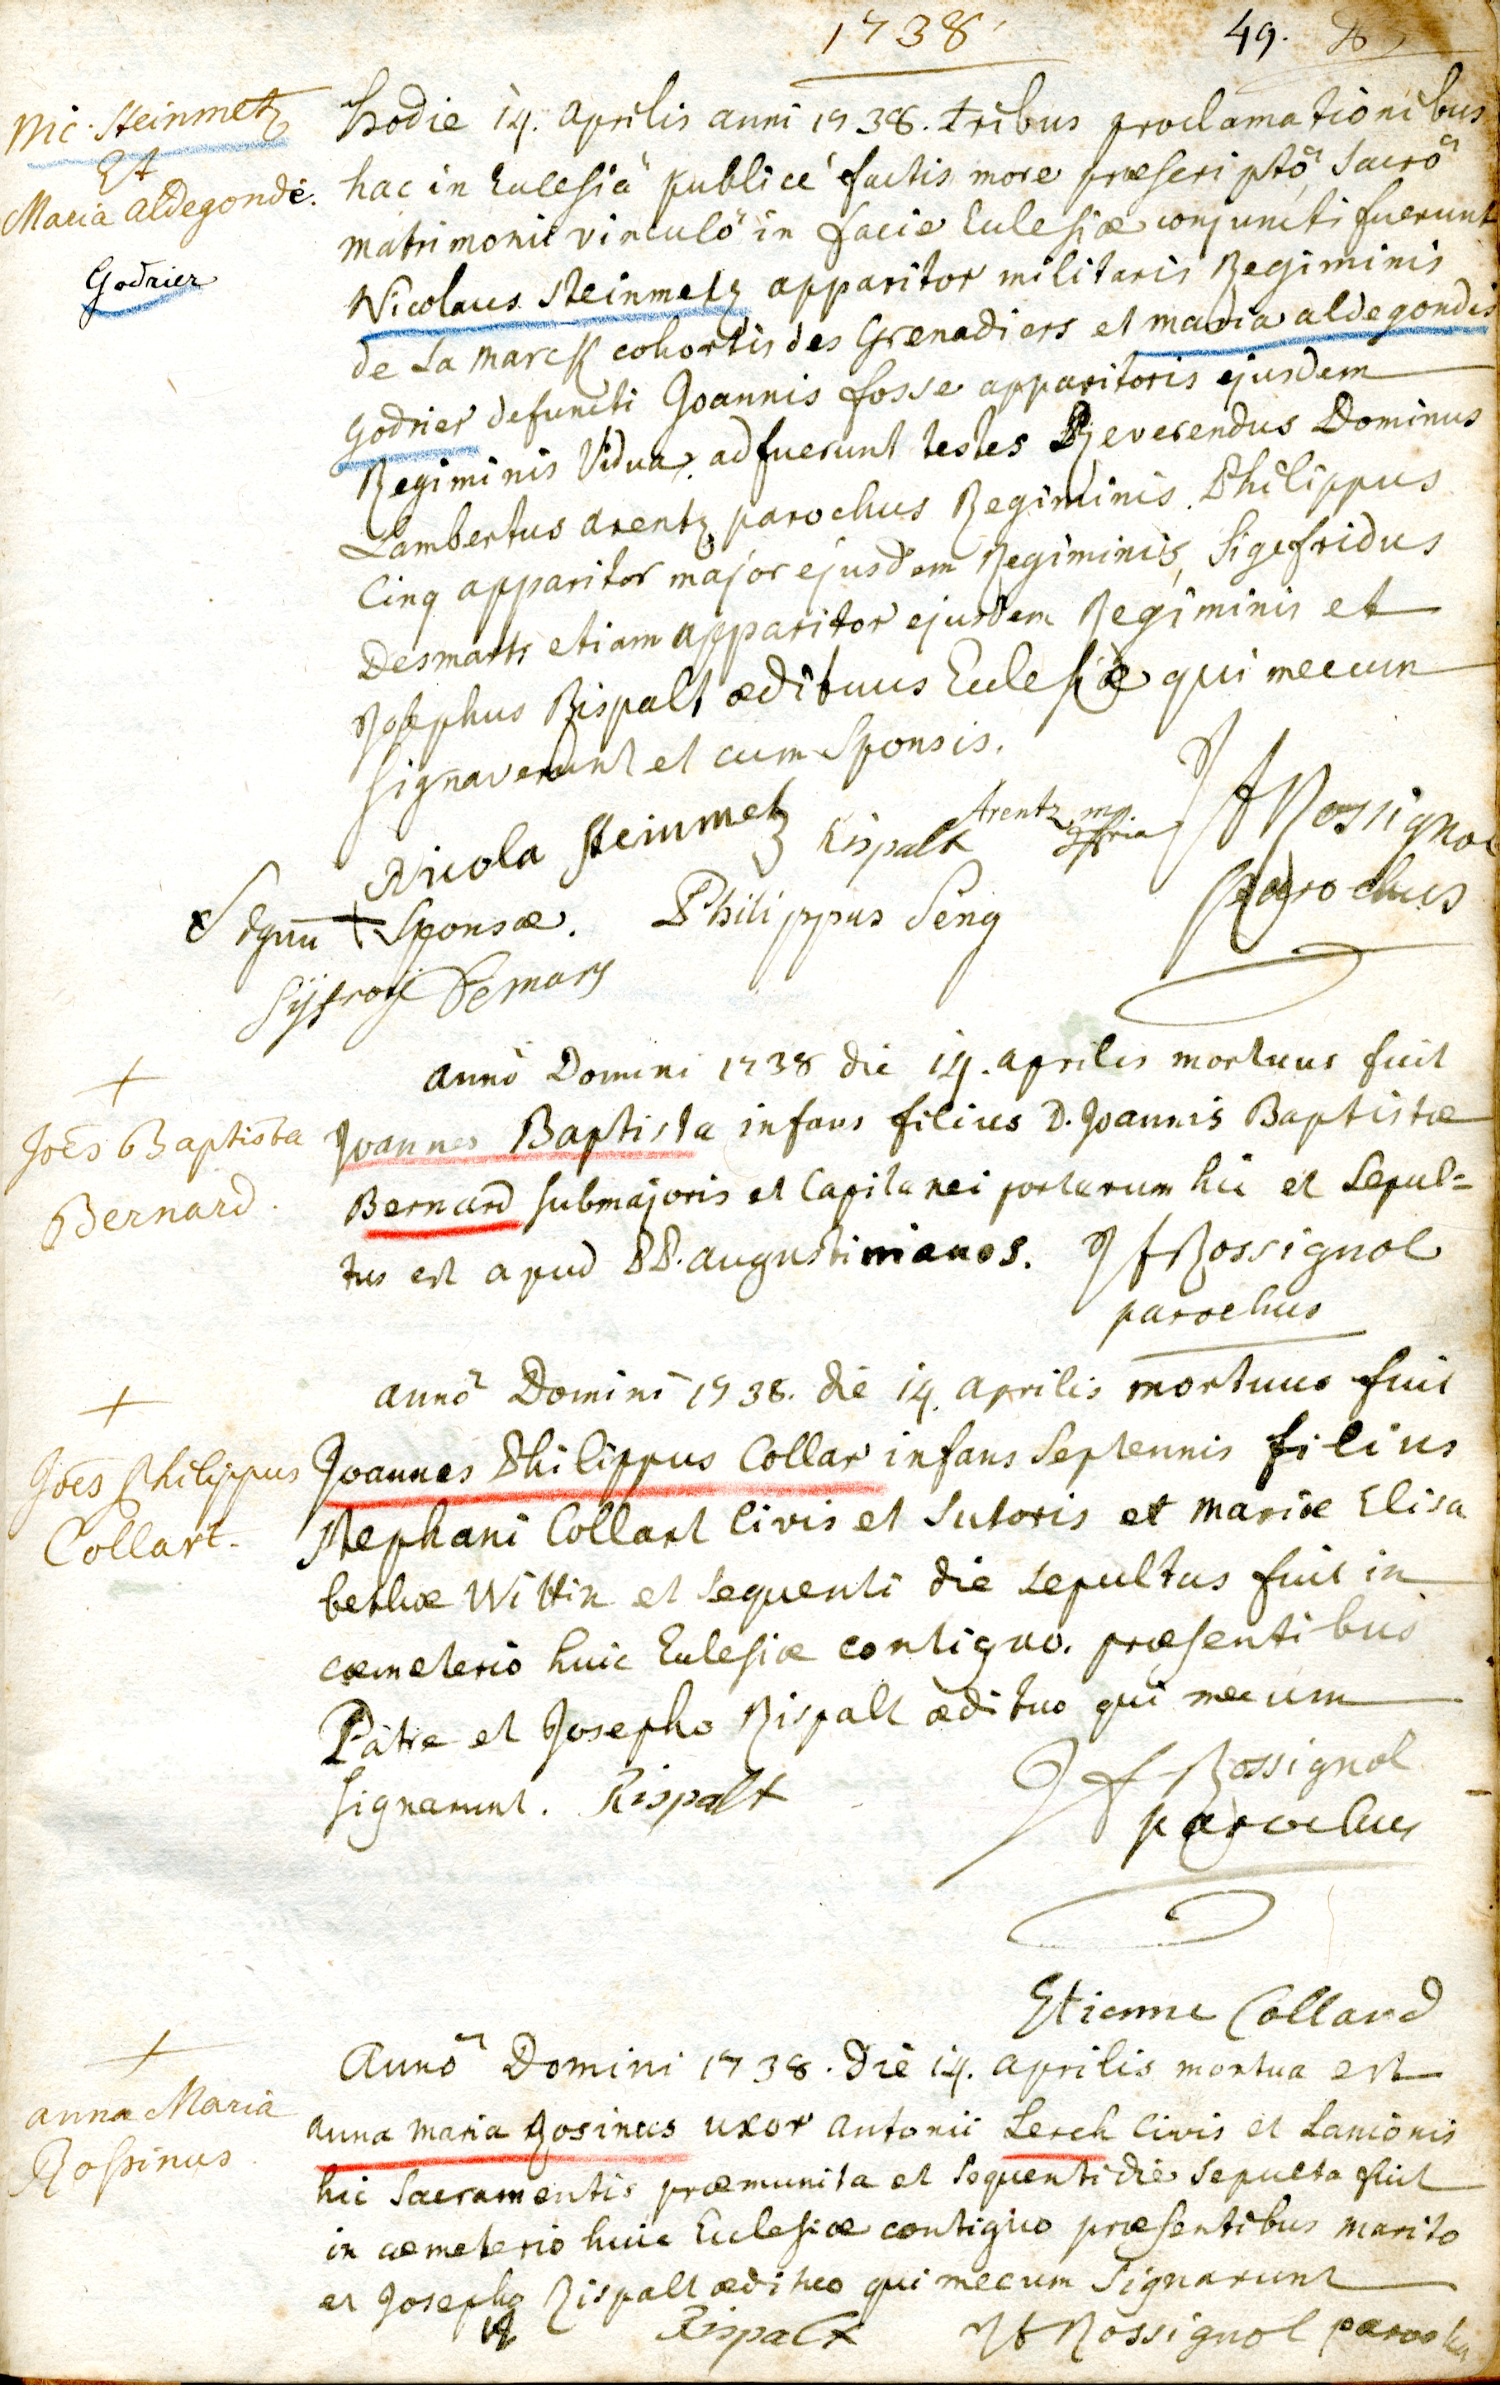 1738
49.
Nic. Steinmetz
Et
Maria Aldegonde.
Godrier
hodie 14. aprilis anni 1738. tribus proclamationibus
hac in Eclesiâ publicè factis more præscriptô sacrô
matrimonii vinculô in facie Eclesiæ conjuncti fuerunt
Nicolaus Steinmetz apparitor militaris Regiminis
de La Marck cohortis des Grenadiers et maria aldegondis
godrier defuncti Joannis fosse apparitoris ejusdem
Regiminis Vidua, adfuerunt testes Reverendus Dominus
Lambertus arentz parochus Regiminis, Philippus
Cinq apparitor major ejusdem Regiminis, Sigefridus
Desmarts etiam apparitor ejusdem Regiminis et
Josephus Rispalt ædituus Eclesiæ qui mecum
signaverunt et cum Sponsis.
Nicola Steinmetz
Rispalt
Arentz mp
pria
J f Rossignol
parochus
Signu + Sponsæ.
Philippus Seng
Syfroy Demars
+
Joes Baptista
Bernard.
annô Domini 1738 die 14. aprilis mortuus fuit
Joannes Baptista infans filius D. Joannis Baptistæ
Bernard submajoris et Capitanei portarum hic et sepul=
tus est apud PP. augustinianos. J f Rossignol
parochus
+
Joes Philippus
Collart.
annô Domini 1738. die 14. aprilis mortuus fuit
Joannes Philippus Collar infans septennis filius
Stephani Collart Civis et sutoris et mariæ Elisa
bethæ Wittin et sequenti die sepultus fuit in
cæmeterio huic Eclesiæ contiguo. præsentibus
Patre et Josepho Rispalt ædituo qui mecum
signarunt. Rispalt
J f Rossignol
parochus
Etienne Collard
+
anna Maria
Rossinus.
Annô Domini 1738. die 14. aprilis mortua est
anna maria Rosinus uxor antonii Lerch Civis et Lanionis
hic Sacramentis præmunita et sequenti die sepulta fuit
in cæmeterio huic Eclesiæ contiguo præsentibus marito
et Josepho Rispalt ædituo qui mecum signarunt
Rispalt
J f Rossignol parochus